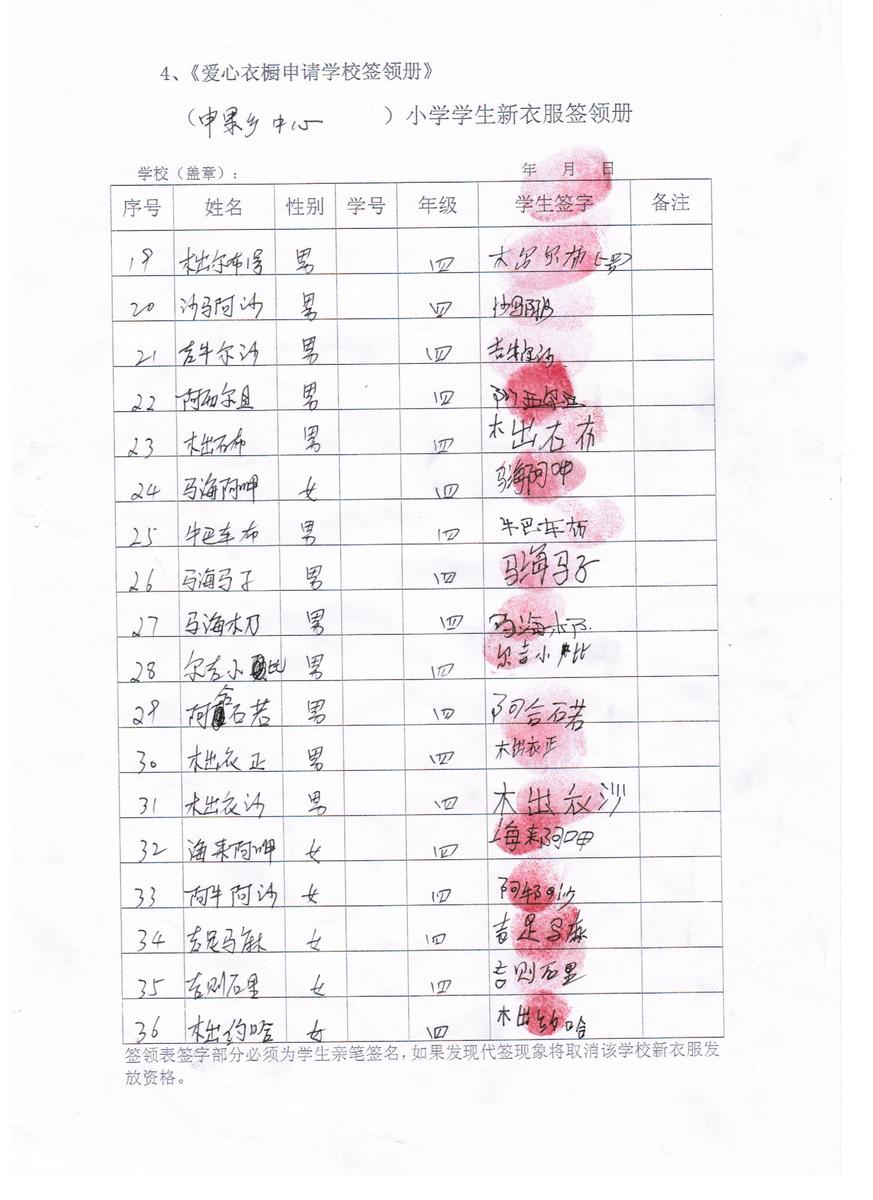 4、《爱心衣橱申请学校签领册》
（申果乡中心）小学学生新衣服签领册
学校（盖章）： 年 月 日
序号 姓名 性别 学号 年级 学生签字 备注
19 木出尔布 男 四
20 沙马阿沙 男 四 沙马阿沙
21 吉牛尔沙 男 四 吉牛尔沙
22 男 四
23 木出石布 男 四 木出石布
24 马海阿呷 女 四 马海阿呷
25 牛巴车布 男 四 牛巴车布
26 马海马子 男 四 马海马子
27 马海木乃 男 四 马海
28 尔吉小 比 男 四 尔吉小 比
29 阿合石若 男 四 阿合石若
30 木出衣正 男 四 木出衣正
31 木出衣沙 男 四 木出衣沙
32 海来阿呷 女 四 海来阿呷
33 阿牛阿沙 女 四 阿牛阿沙
34 吉足马麻 女 四 吉足马麻
35 吉则石里 女 四 吉则石里
36 木出约哈 女 四 木出约哈
签领表签字部分必须为学生亲笔签名，如果发现代签现象将取消该学校新衣服发
放资格。